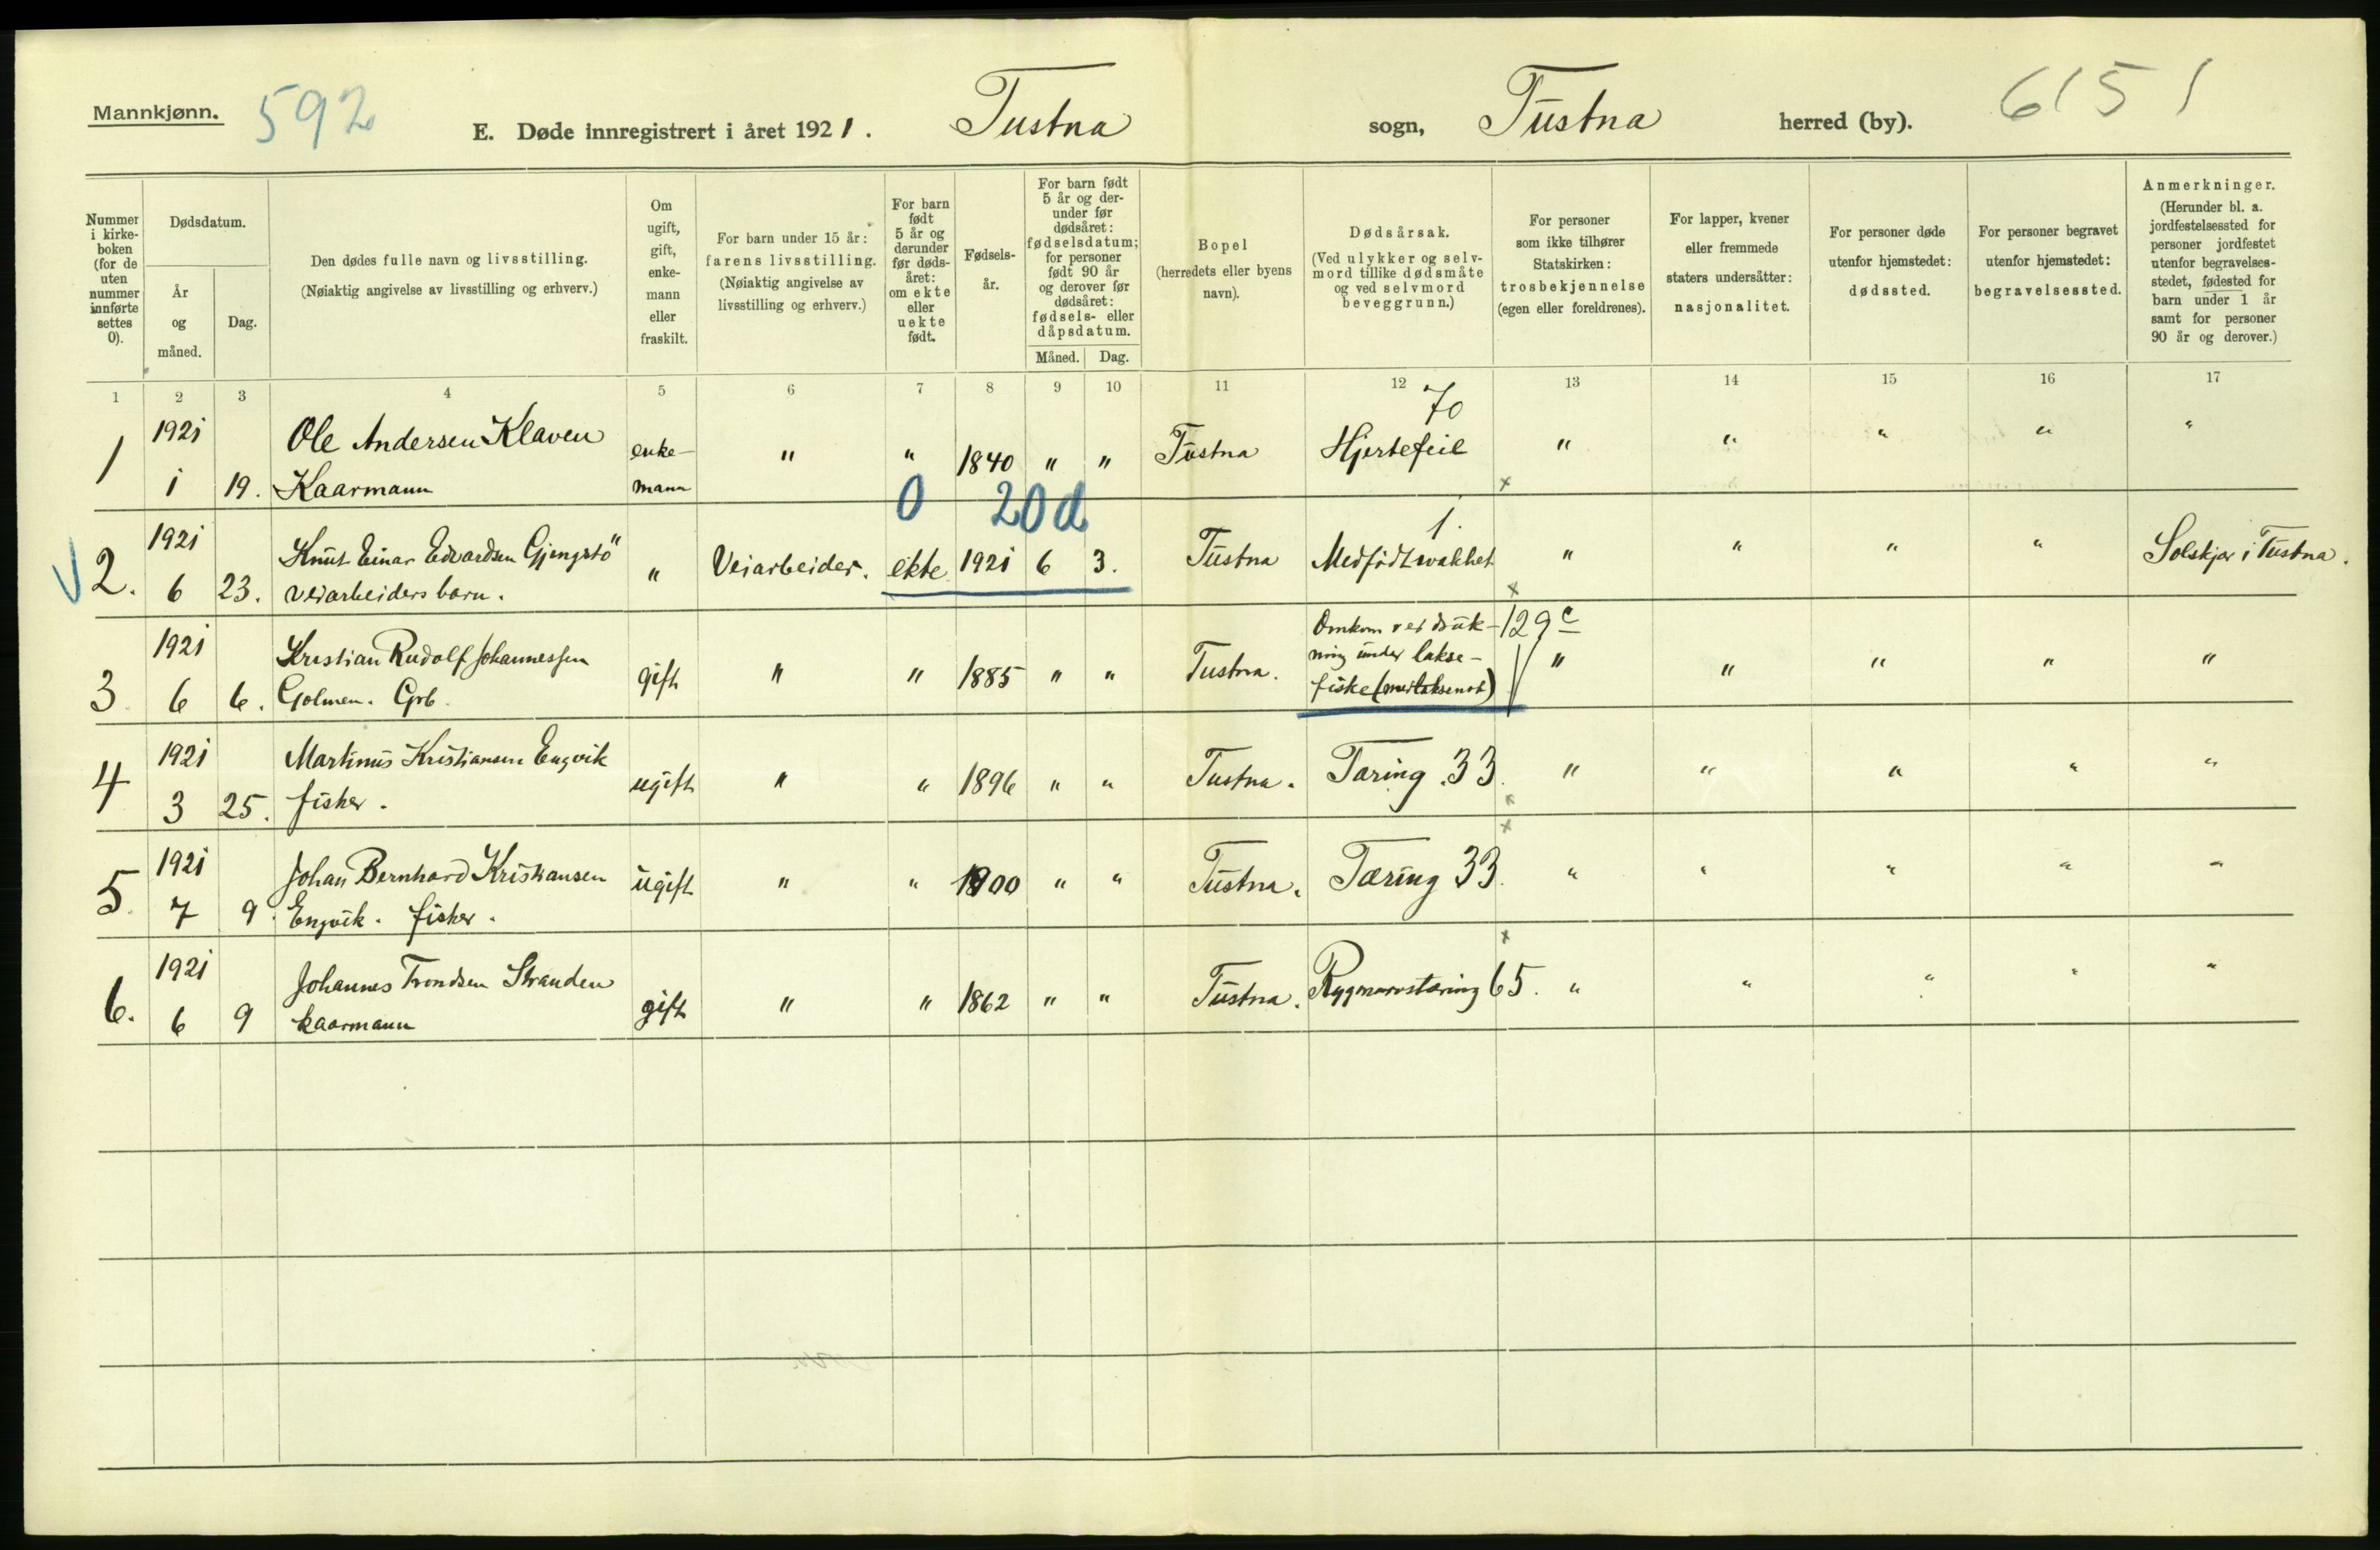 Mannkjønn.
592
E. Døde innregistrert i året 1921.
Tustna
sogn,
Tustna
herred (by).
6151
Nummer i kirke-boken (for de uten nummer innførte settes 0).
Dødsdatum.
År og måned.
Dag.
Den dødes fulle navn og livsstilling.
(Nøiaktig angivelse av livsstilling og erhverv.)
Om ugift, gift, enke-mann eller fraskilt.
For barn under 15 år: farens livsstilling.
(Nøiaktig angivelse av livsstilling og erhverv.)
For barn født 5 år og derunder før døds-året: om ekte eller uekte født.
Fødsels-år.
For barn født 5 år og der-under før dødsåret: fødselsdatum; for personer født 90 år og derover før dødsåret: fødsels- eller dåpsdatum.
Måned.
Dag.
Bopel
(herredets eller byens navn).
Dødsårsak.
(Ved ulykker og selv-mord tillike dødsmåte og ved selvmord beveggrunn.)
For personer som ikke tilhører Statskirken: trosbekjennelse (egen eller foreldrenes).
For lapper, kvener eller fremmede staters undersåtter: nasjonalitet.
For personer døde utenfor hjemstedet: dødssted.
For personer begravet utenfor hjemstedet: begravelsessted.
Anmerkninger.
(Herunder bl. a. jordfestelsessted for personer jordfestet utenfor begravelses-stedet, fødested for barn under 1 år samt for personer 90 år og derover.)
1 2 3 4 5 6 7 8 9 10 11 12 13 14 15 16 17
70
1 1921 1 19. Ole Andersen Klaven Kaarmann enke-mann " " 1840 " " Tustna Hjertefeil " " " " "
0 20d
1.
2. 1921 6 23. Knut Einar Edvardsen Gjengstø veiarbeiders barn. " Veiarbeider. ekte 1921 6 3. Tustna Medfødt svakhet " " " " Solskjær i Tustna.
129c
3. 1921 6 6. Kristian Rudolf Johannessen Golmen. Grb. gift " " 1885 " " Tustna. Omkom ved drukning under lakse-fiske (med laksenot) " " " " "
4 1921 3 25. Martinus Kristiansen Engvik fisker. ugift " " 1896 " " Tustna. Tæring. 33. " " " " "
5. 1921 7 9. Johan Bernhard Kristiansen Engvik. fisker. ugift " " 1900 " " Tustna. Tæring 33. " " " " "
6. 1921 6 9 Johannes Trondsen Stranden kaarmann gift " " 1862 " " Tustna. Rygmarvstæring 65. " " " " "